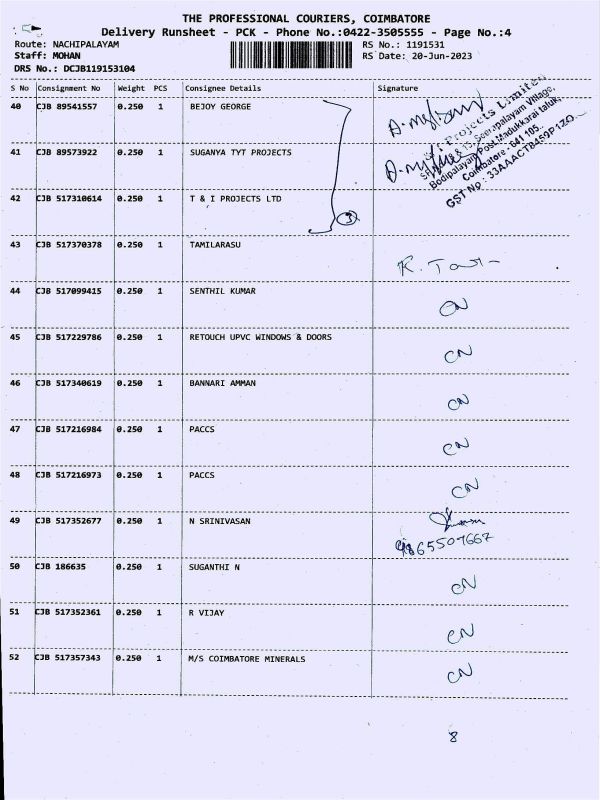 THE PROFESSIONAL COURIERS, COIMBATORE
Delivery Runsheet - PCK - Phone No.:0422-3505555 - Page No.:4
Route: NACHIPALAYAM RS No.: 1191531
Staff: MOHAN RS Date: 20-Jun-2023
DRS No.: DCJB119153104
S No Consignment No Weight PCS Consignee Details Signature
40 CJB 89541557 0.250 1 BEJOY GEORGE
Projects Limited
Seerapalayam Village,
Bodipalayam Post, Madukkarai taluk,
Coimbatore - 641 105.
GST No : 33AAACT8459P1ZO
41 CJB 89573922 0.250 1 SUGANYA TYT PROJECTS
42 CJB 517310614 0.250 1 T & I PROJECTS LTD
3
43 CJB 517370378 0.250 1 TAMILARASU
44 CJB 517099415 0.250 1 SENTHIL KUMAR CN
45 CJB 517229786 0.250 1 RETOUCH UPVC WINDOWS & DOORS CN
46 CJB 517340619 0.250 1 BANNARI AMMAN CN
47 CJB 517216984 0.250 1 PACCS CN
48 CJB 517216973 0.250 1 PACCS CN
49 CJB 517352677 0.250 1 N SRINIVASAN
9865507667
50 CJB 186635 0.250 1 SUGANTHI N CN
51 CJB 517352361 0.250 1 R VIJAY CN
52 CJB 517357343 0.250 1 M/S COIMBATORE MINERALS CN
8